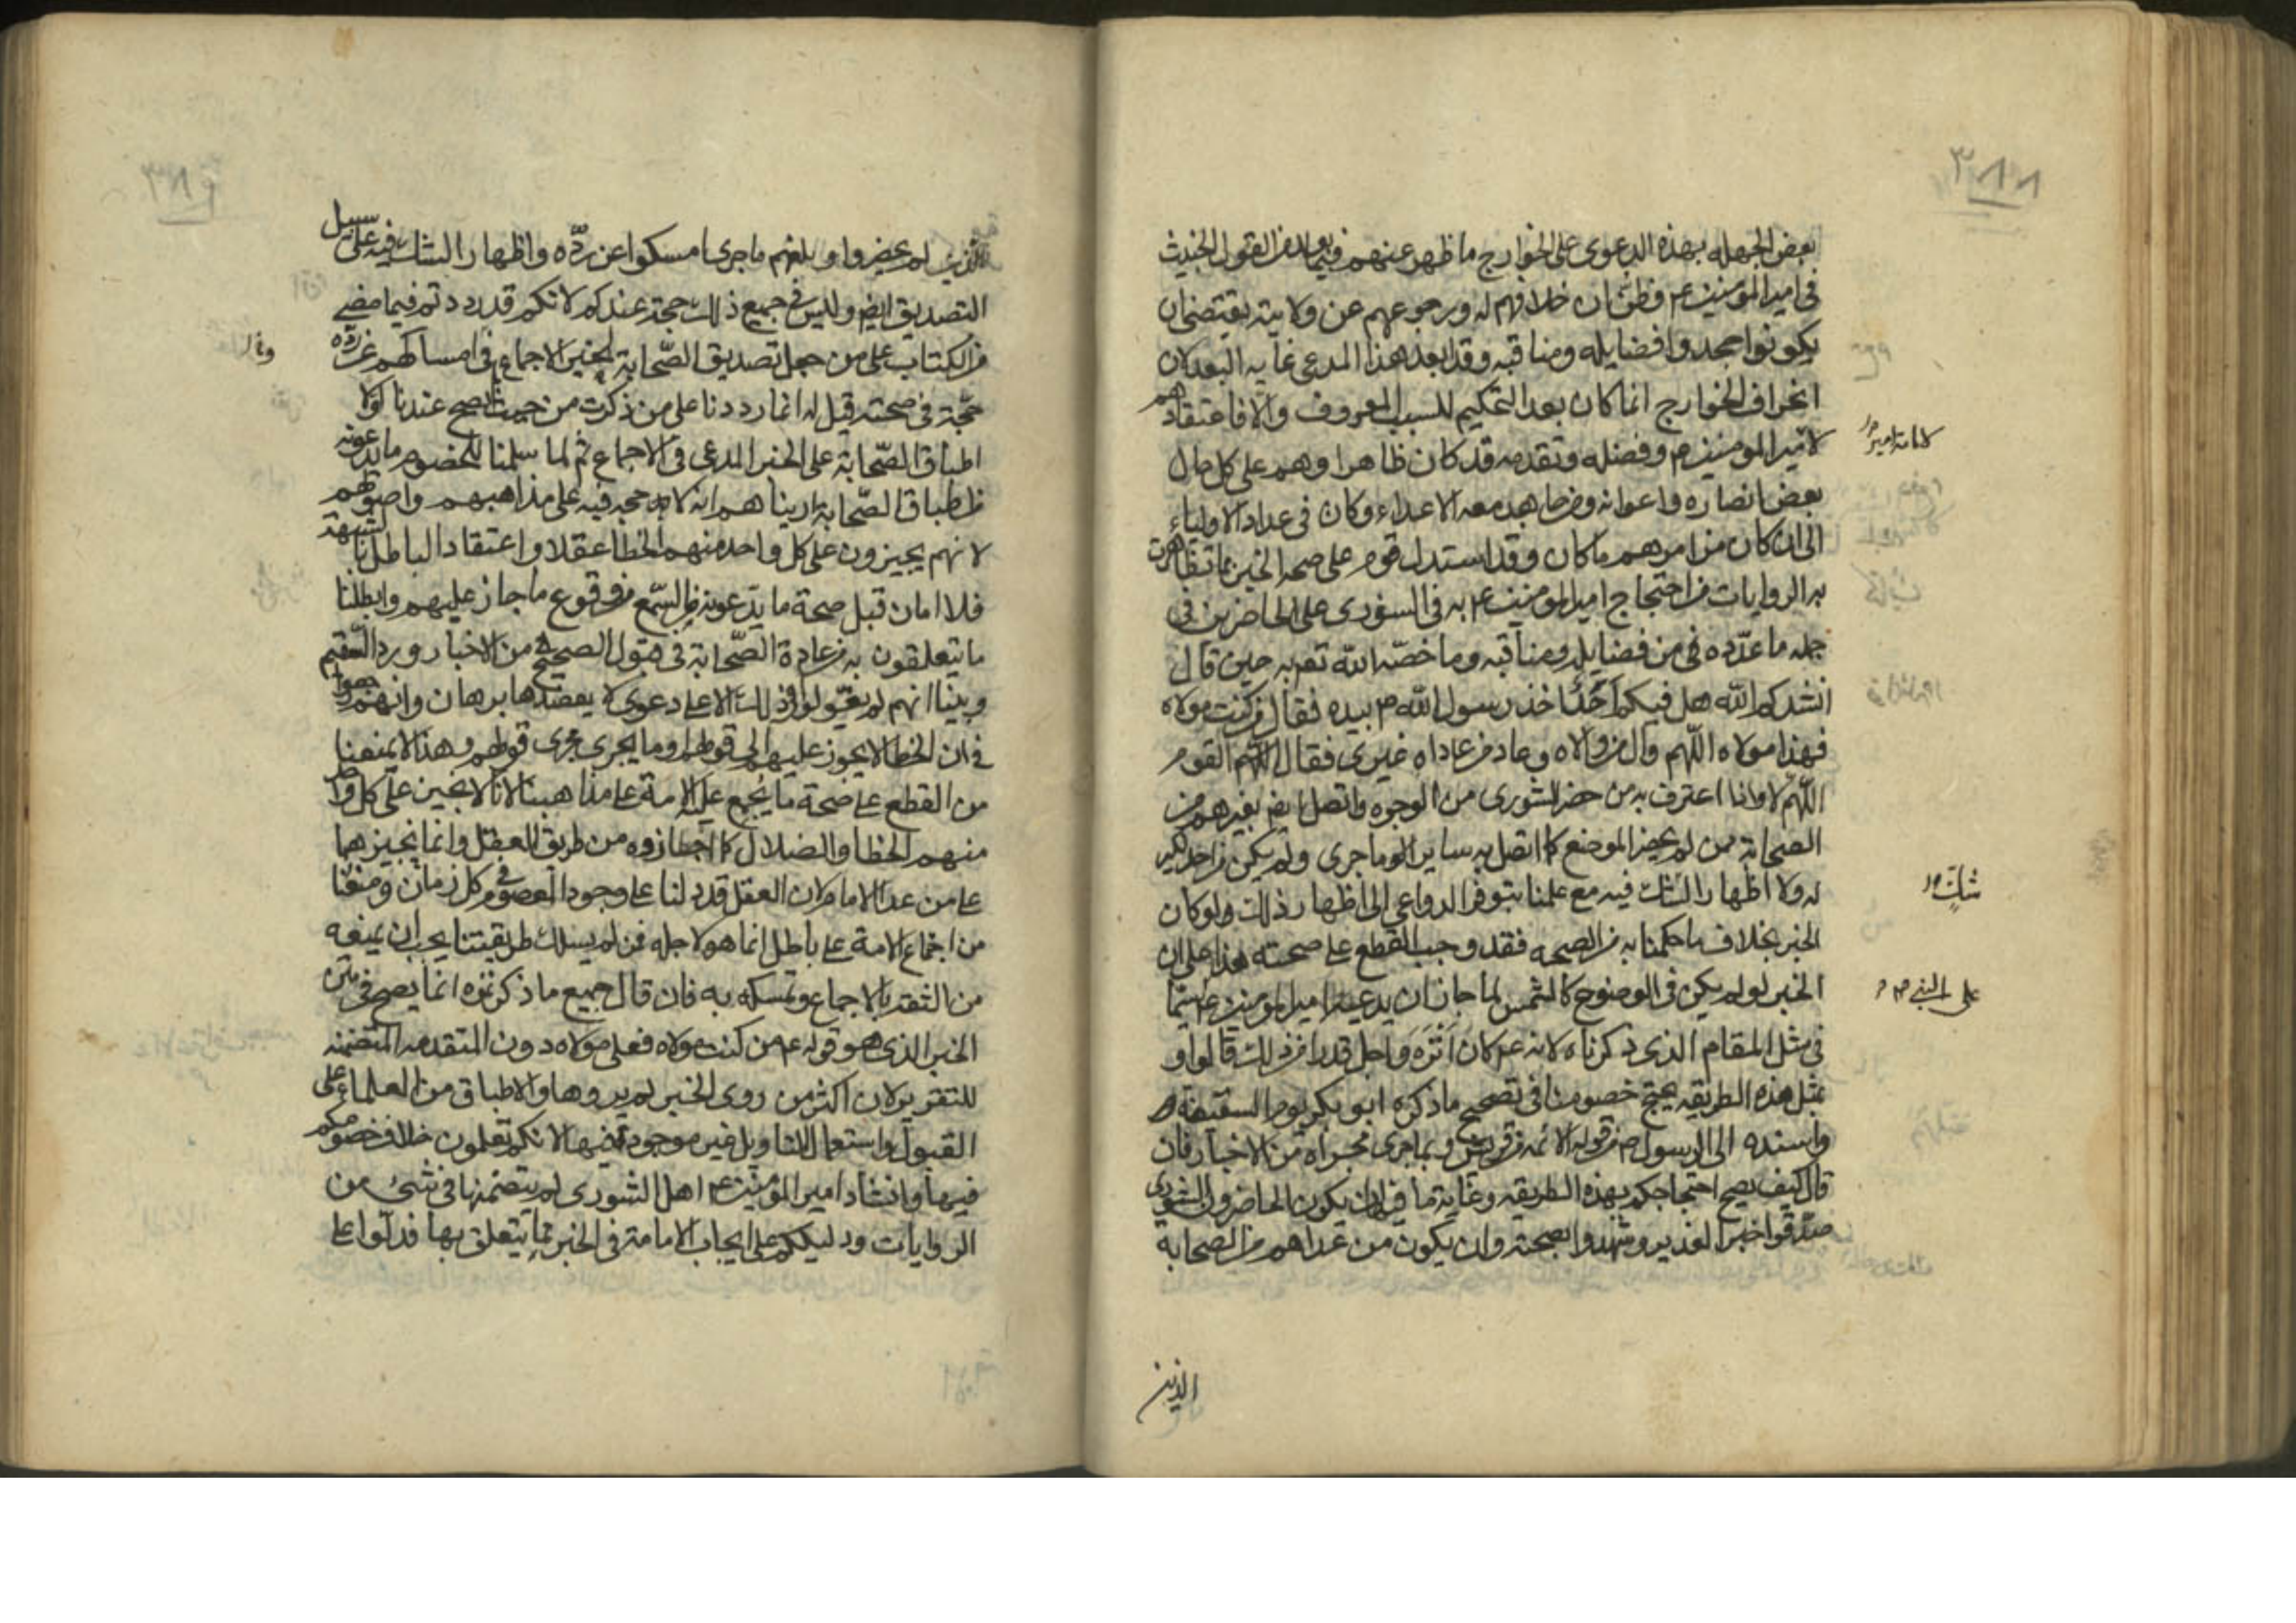 ٣٨٨
بعض الجهله بهذه الدعوى على الخوارج ما ظهر عنهم فيما بعد من القول الخبيث
فى امير المؤمنين ع وظن ان خلافهم له ورجوعهم عن ولايته يقتضى ان
يكونوا جحدوا فضايله ومناقبه وقد ابعد هذا المدعى غاية البعد لان
انحراف الخوارج انما كان بعد التحكيم للسبب المعروف والا فاعتقادهم
لامير المومنين م وفضله وتقدمه قد كان ظاهرا وهم على كل حال
لامامة امير
بعض انصاره واعوانه وممن جاهد معه الاعداء وكان فى عداد الاولياء
الى ان كان من امرهم ما كان وقد استدل قوم على صحه الخبر بما تظاهرت
به الروايات من احتجاج امير المومنين ع به فى الشورى على الحاضرين فى
جمله ما عدّده فى من فضايله ومناقبه وما خصّه الله تعه به حين قال
انشدكم الله هل فيكم احد اخذ رسول الله ص بيده فقال من كنت مولاه
فهذا مولاه اللهم وال من والاه وعاد من عاداه غيرى فقال القوم
اللهم لا واذا اعترف به من حضر الشورى من الوجوه واتصل ايض بغيرهم من
الصحابة ممن لم يحضر الموضع كما اتصل به ساير ما جرى ولم يكن من احد نكير
له ولا اظهار الشك فيه مع علمنا بتوفر الدواعى الى اظهار ذلك ولو كان
شكّ
الخبر بخلاف ما حكمنا به من الصحه فقد وجب القطع على صحته هذا على ان
الخبر لو لم يكن فى الوضوح كالشمس لما جاز ان يدعيه امير المومنين ع سيّما
على النبى ص
فى مثل المقام الذى ذكرناه لانه ع كان انزه واجل قدرا من ذلك قالوا و
بمثل هذه الطريقه يحتج خصومنا فى تصحيح ما ذكره ابو بكر يوم السقيفة
واسنده الى الرسول ص من قوله الائمه من قريش وبما جرى مجراه من الاخبار فان
قال كيف يصح احتجاجكم بهذه الطريقه وغاية ما فيه ان يكون الحاضرون الشورى
صدّقوا خبر الغدير وشهدوا بصحته وان يكون من عداهم من الصحابة
الذين
٣٨٩
الذين لم يحضروا وبلغهم ما جرى امسكوا عن ردّه واظهار الشك فيه على سبيل
التصديق ايض وليس فى جميع ذلك حجة عندكم لانكم قد رددتم فيما مضى
من الكتاب على من جعل تصديق الصّحابة لخبر الاجماع فى امساكهم عن ردّه
حجّة فى صحته قيل له انما رددنا على من ذكرت من حيث لم يصح عندنا اولا
اطباق الصّحابة على الخبر المدعى فى الاجماع ثم لما سلمنا للخصوم ما يدعونه
من اطباق الصّحابة اريناهم انه لا حجه فيه على مذاهبهم واصولهم
لانهم يجيزون على كل واحد منهم الخطا عقلا واعتقاد الباطل بالشبهة
فلا امان قبل صحة ما يدّعونه من السّمع من وقوع ما جاز عليهم وابطلنا
ما يتعلقون به من عادة الصّحابة فى قبول الصحيح من الاخبار ورد السّقيم
وبيّنا انهم لم يقولوا فى ذلك الا على دعوى لا يعضدها برهان وانهم رجعوا
فى ان الخطا لا يجوز عليهم الى قولهم وما يجرى مجرى قولهم وهذا لا يمنعنا
من القطع على صحة ما يجمع عليه الامة على مذاهبنا لانا لا نجيز على كل واحد
منهم الخطا والضلال كما اجازوه من طريق العقل وانما نجيزهما
على من عدا الامام لان العقل قد دلنا على وجود المعصوم فى كل زمان ومنعنا
من اجتماع الامة على باطل انما هو لاجله فمن لم يسلك طريقتنا يجب ان يمنعه
من الثقة بالاجماع وتمسكه به فان قال جميع ما ذكرتموه انما يصح فى متن
الخبر الذى هو قوله ع من كنت مولاه فعلى مولاه دون المتقدمه المتضمنه
للتقرير لان اكثر من روى الخبر لم يروها والاطباق من العلماء على
القبول واستعمال التاويل غير موجود فيها لانكم تعلمون خلاف خصومكم
فيها وانشاد امير المؤمنين ع اهل الشورى لم يتضمنها فى شىء من
الروايات ودليلكم على ايجاب الامامة فى الخبر مما يتعلق بها فدلوا على